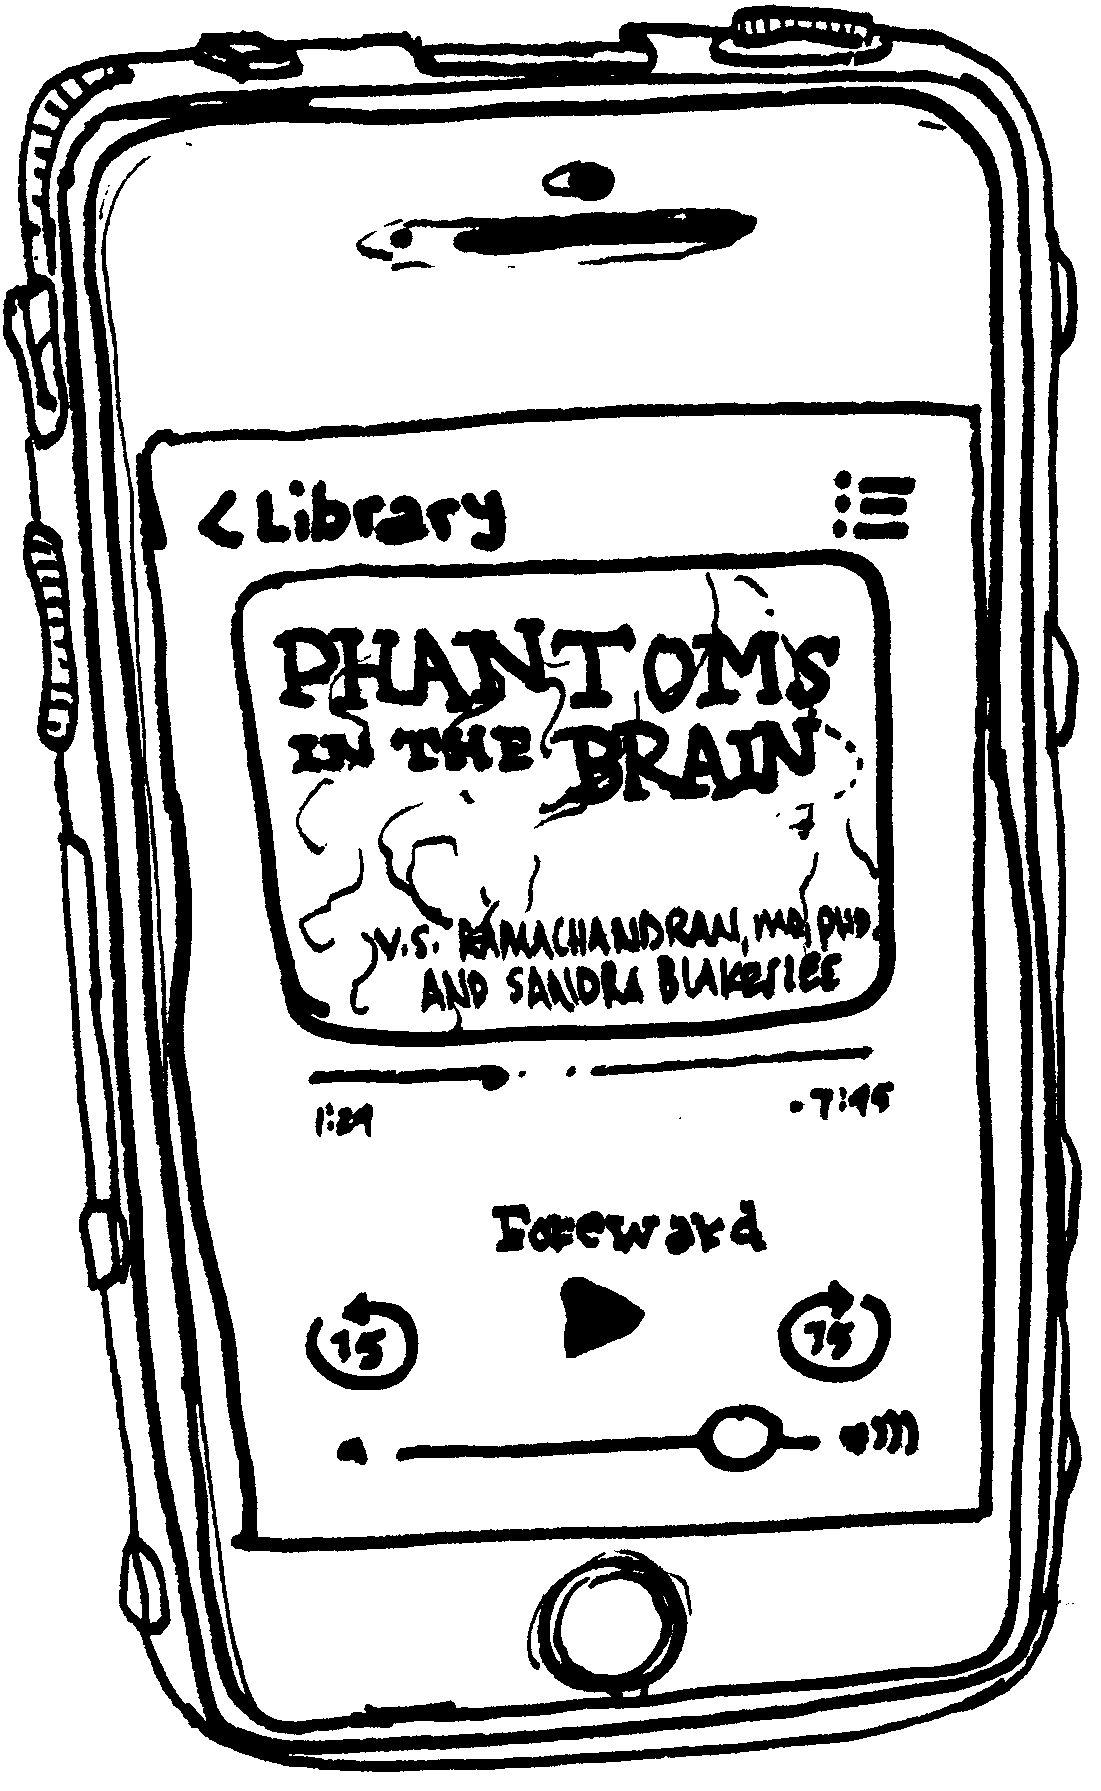 < Library
PHANTOMS
IN THE BRAIN
V.S. RAMACHANDRAN, MD, PHD.
AND SANDRA BLAKESLEE
1:29
-7:45
Foreward
15
15